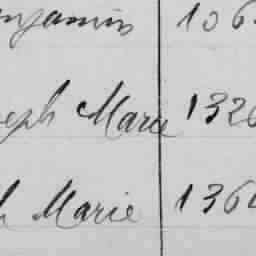 njamin 106
eph Marie 1326
h Marie 136